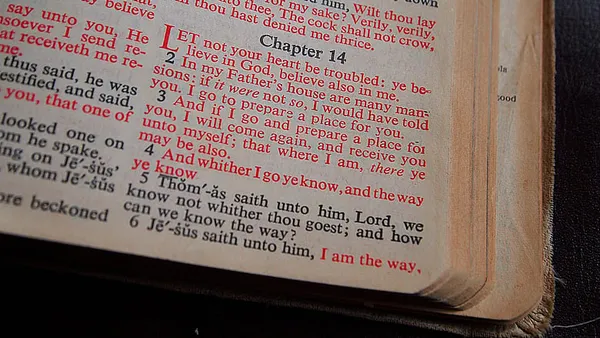 may believe
say unto you, He
soever I send re-
at receiveth me re-
me.
thus said, he was
estified, and said,
you, that one of
looked one on
om he spake.
ing on Jē′-ṡŭs′
, whom Jē′-ṡŭs
ore beckoned
down
him, Wilt thou lay
for my sake? Verily, verily,
unto thee, The cock shall not crow,
thou hast denied me thrice.
Chapter 14
LET not your heart be troubled: ye be-
lieve in God, believe also in me.
2 In my Father's house are many man-
sions: if it were not so, I would have told
you. I go to prepare a place for you.
3 And if I go and prepare a place for
you, I will come again, and receive you
unto myself; that where I am, there ye
may be also.
4 And whither I go ye know, and the way
ye know.
5 Thŏm′-ăs saith unto him, Lord, we
know not whither thou goest; and how
can we know the way?
6 Jē′-ṡŭs saith unto him, I am the way,
ood